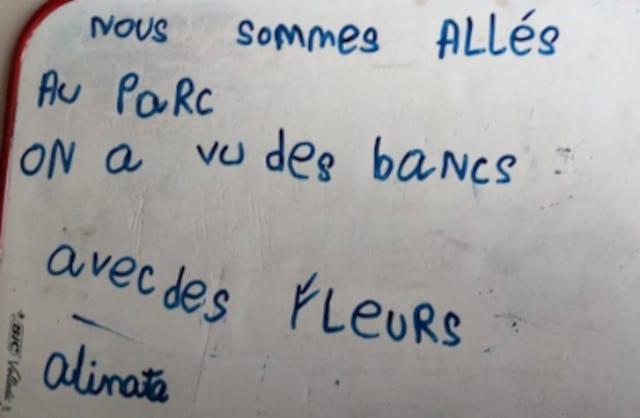 NOUS sommes ALLés
AU PaRC
ON a vu des baNCS
avec des FLeuRS
alinata